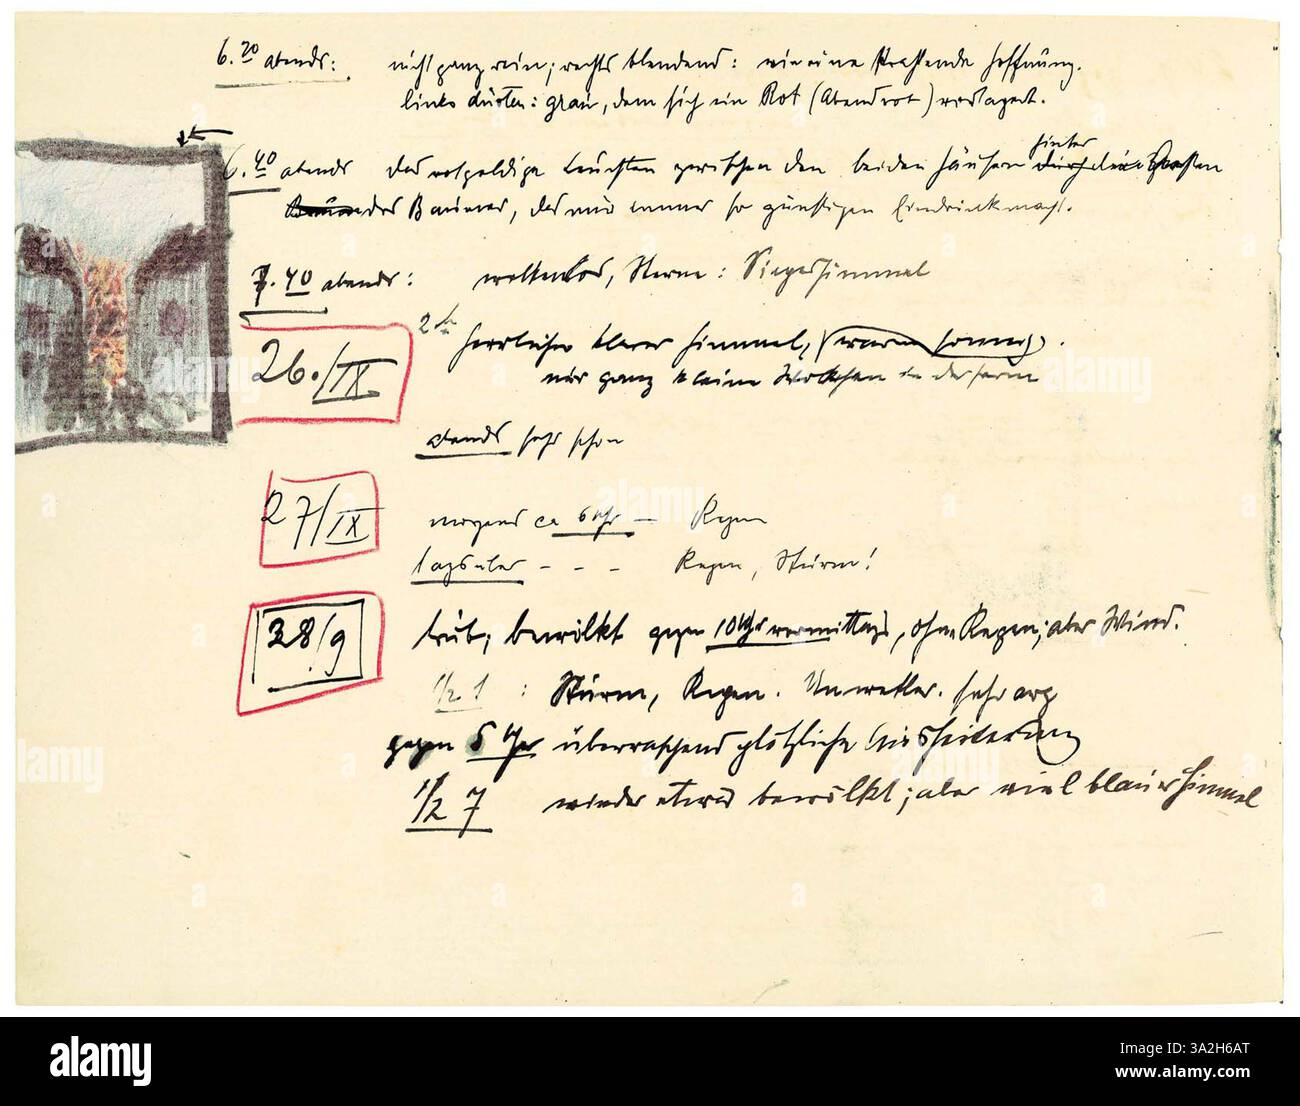 6.20 abends: nicht ganz rein; rechts blendend: wie eine strahlende Hoffnung.
links düster: grau, dem sich ein Rot (Abendrot) vorlagert.
6.40 abends das rotgoldige Leuchten zwischen den beiden Häusern hinter
des Baumes, das mir immer so günstigen Eindruck macht.
7.40 abends: wolkenlos, Sterne: Siegeshimmel
26./IX 2 h herrlicher klarer Himmel, (warm sonnig).
nur ganz kleine Wölkchen in der Ferne
abends sehr schön
27/IX morgens ca 6 Uhr — Regen
tagsüber - - - Regen, Sturm!
28/9 trüb, bewölkt gegen 10 Uhr vormittags, ohne Regen; aber Wind.
1/2 1 : Sturm, Regen. Unwetter. sehr arg
gegen 5 Uhr überraschend plötzliche Ausheiterung
1/2 7 wieder etwas bewölkt; aber viel blauer Himmel
alamy
Image ID: 3A2H6AT
www.alamy.com